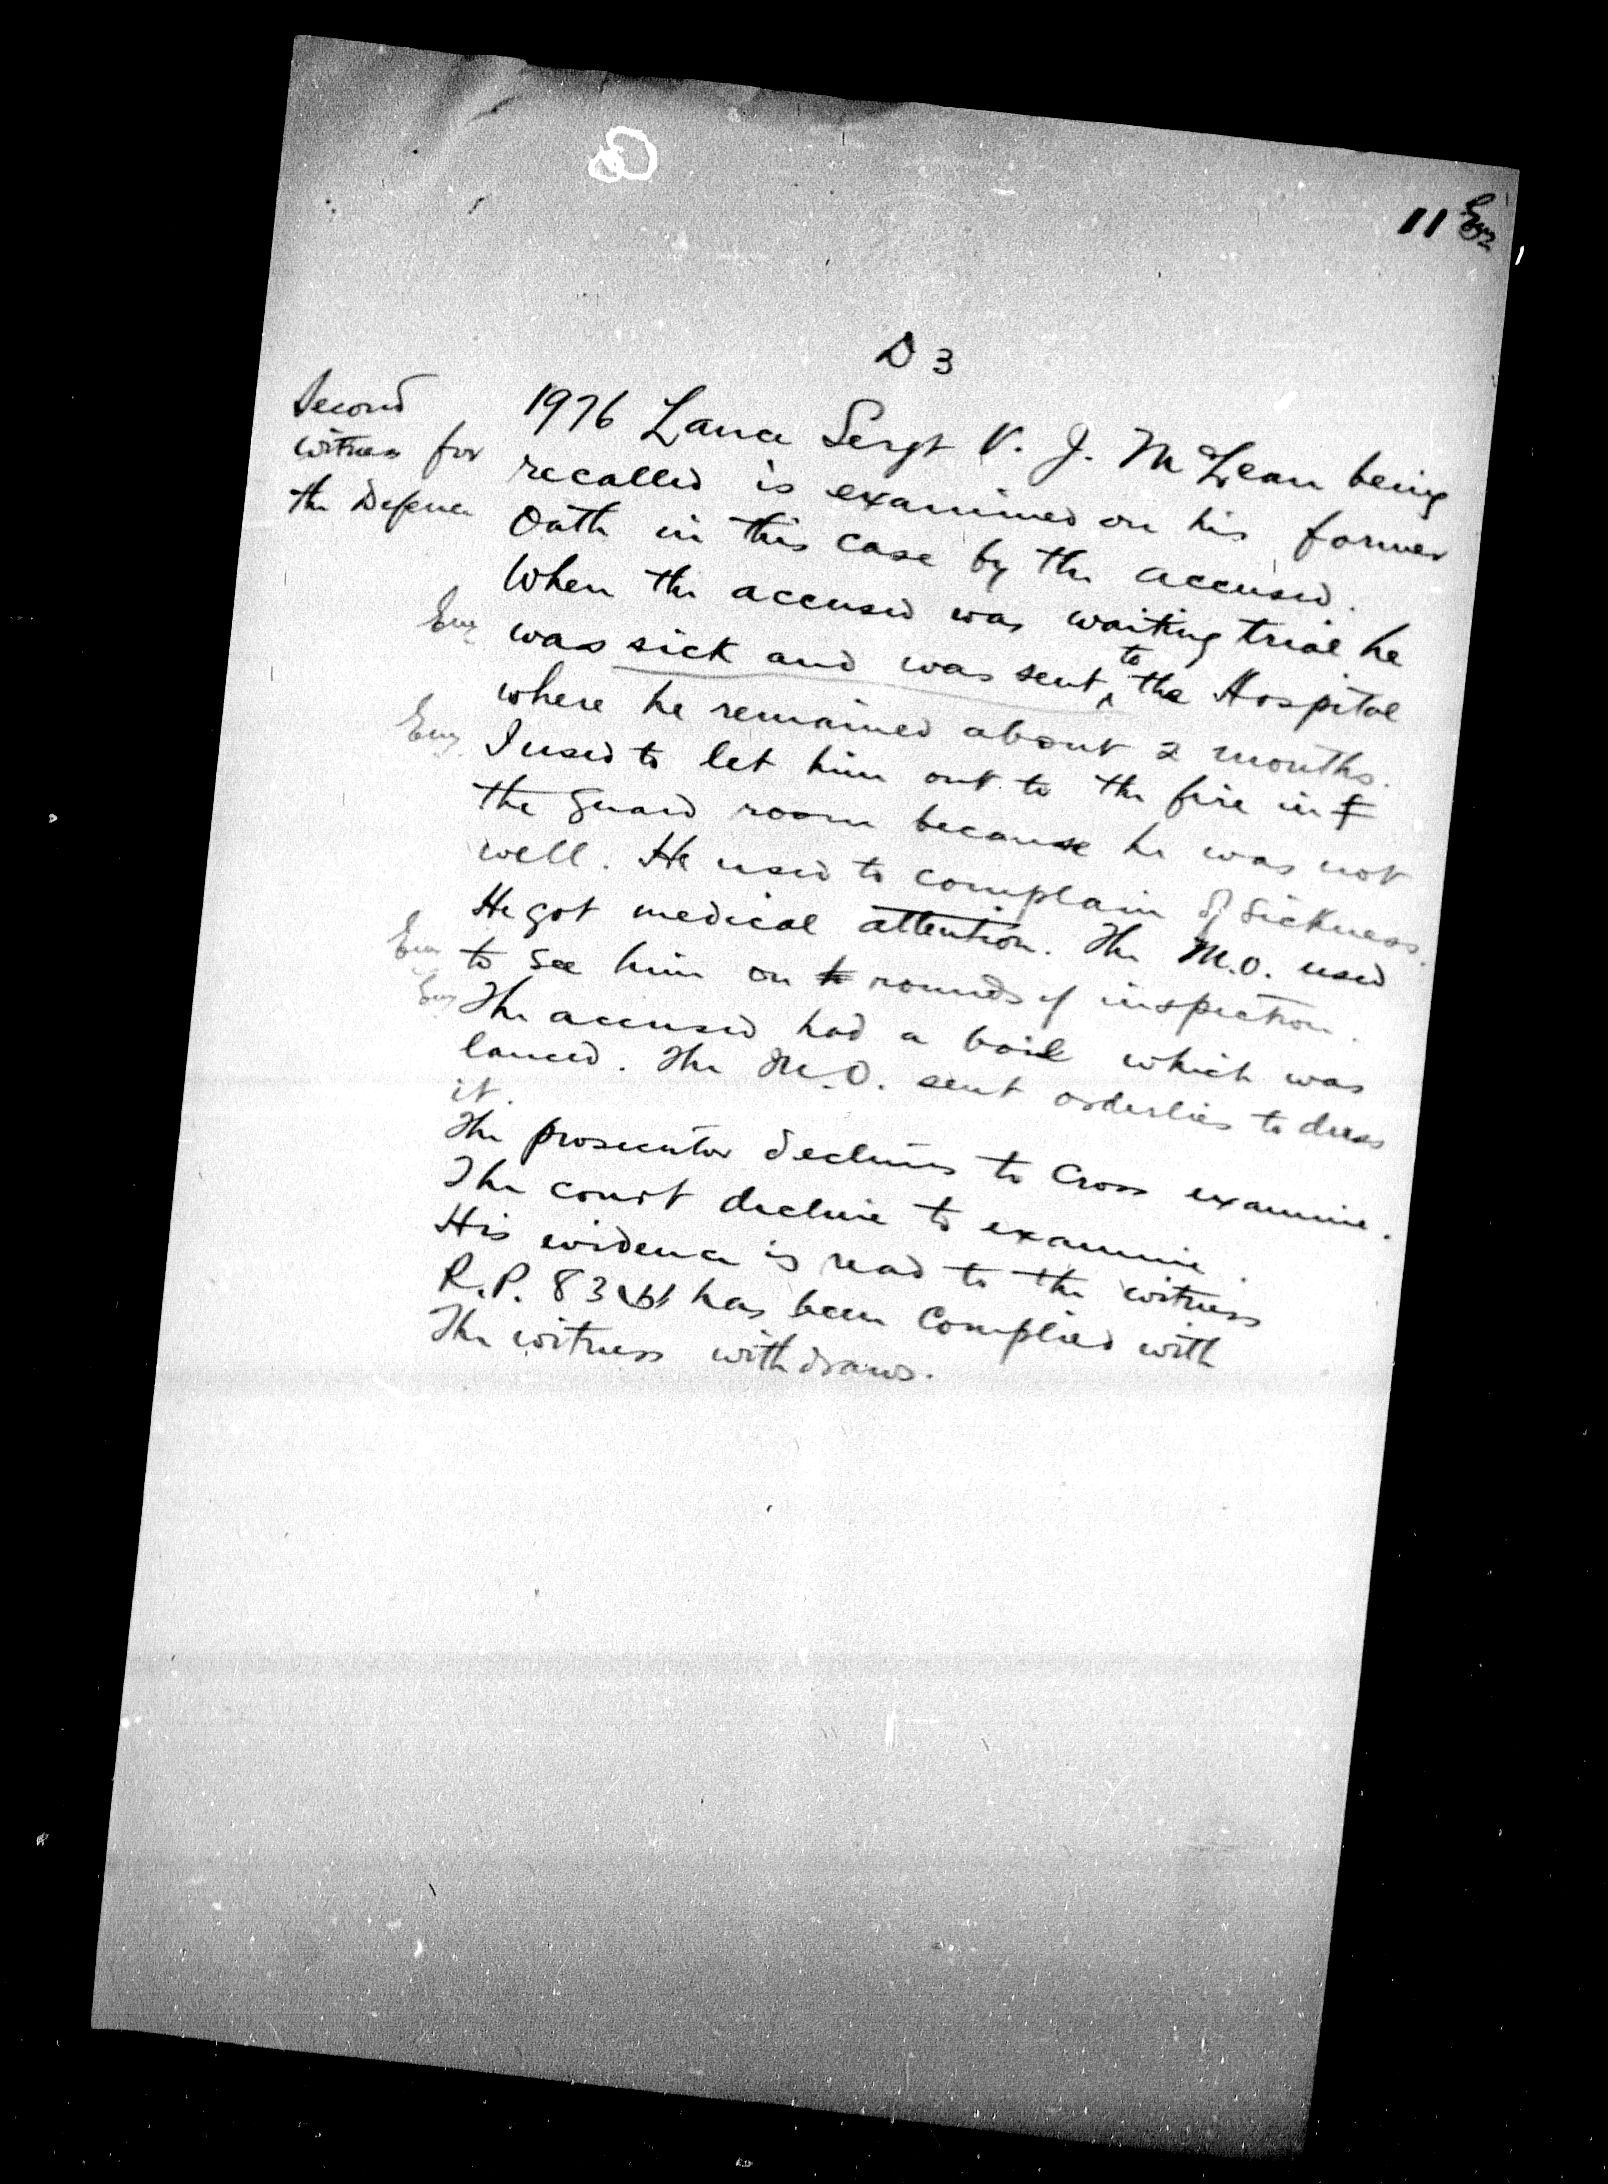 11
D 3
Second
witness for
the Defence
1976 Lance Sergt V. J. McLean being
recalled is examined on his former
Oath in this case by the accused.
When the accused was waiting trial he
was sick and was sent to the Hospital
where he remained about 2 months.
I used to let him out to the fire in
the guard room because he was not
well. He used to complain of sickness.
He got medical attention. The M.O. used
to see him on rounds of inspection.
The accused had a boil which was
lanced. The M.O. sent orderlies to dress
it.
The prosecutor declines to cross examine.
The court decline to examine.
His evidence is read to the witness
R.P. 83 (b) has been complied with
The witness withdraws.